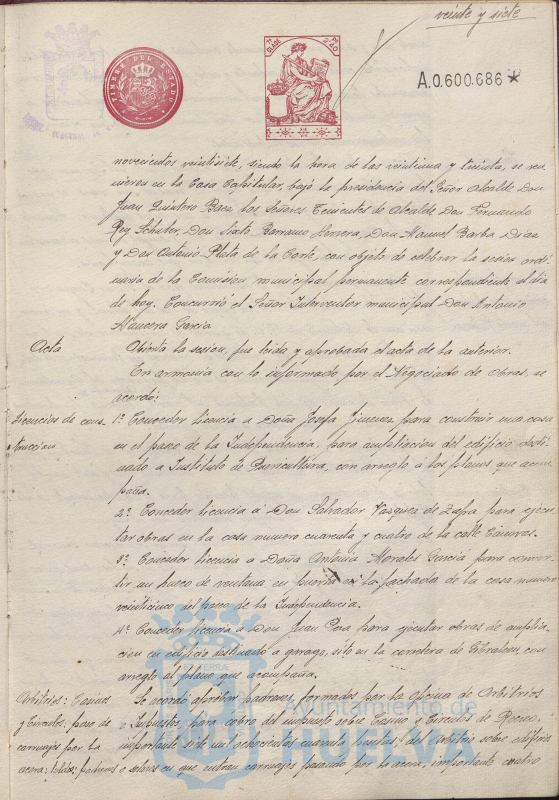 veinte y siete
TIMBRE DEL ESTADO
7ª CLASE
PS 2'40
A.0.600.686 *
novecientos veintisiete, siendo la hora de las veintiuna y treinta, se reu-
nieron en la Casa Capitular bajo la presidencia del Señor Alcalde Don
Juan Quintero Baez los Señores Tenientes de Alcalde Don Fernando
Rey Schuter, Don Sixto Barrano Herrera, Don Manuel Barba Diaz
y Don Antonio Plata de la Corte, con objeto de celebrar la sesion ordi-
naria de la Comision municipal permanente correspondiente al dia
de hoy. Concurrió el Señor Interventor municipal Don Antonio
Garcia
Acta
Abierta la sesion, fue leida y aprobada el acta de la anterior.
En armonia con lo informado por el Negociado de Obras, se
acordó:
Licencias de cons-
truccion
1º Conceder licencia a Doña Josefa Jimenez para construir una casa
en el paseo de la Independencia, para ampliacion del edificio desti-
nado a Instituto de Puericultura, con arreglo a los planos que acom-
paña.
2º Conceder licencia a Don Salvador Vazquez de Zafra para ejecu-
tar obras en la casa numero cuarenta y cuatro de la calle
3º Conceder licencia a Doña Antonia Morales Garcia para conver-
tir un hueco de ventana en puerta en la fachada de la casa numero
veinticinco del paseo de la Independencia.
4º Conceder licencia a Don Juan para ejecutar obras de amplia-
cion en edificio destinado a garage, sito en la carretera de Gibraleon, con
arreglo al plano que acompaña.
Arbitrios: Casinos
y Circulos: paso de
carruajes por la
acera: toldos: padrones
Se acordó aprobar padrones, formados por la oficina de Arbitrios
e Impuestos, para cobro del impuesto sobre Casinos y Circulos de Recreo,
importante siete mil ochocientas cuarenta pesetas; del Arbitrio sobre edificios
o solares en que entran carruajes pasando por la acera, importante cuatro
Ayuntamiento de
HUELVA